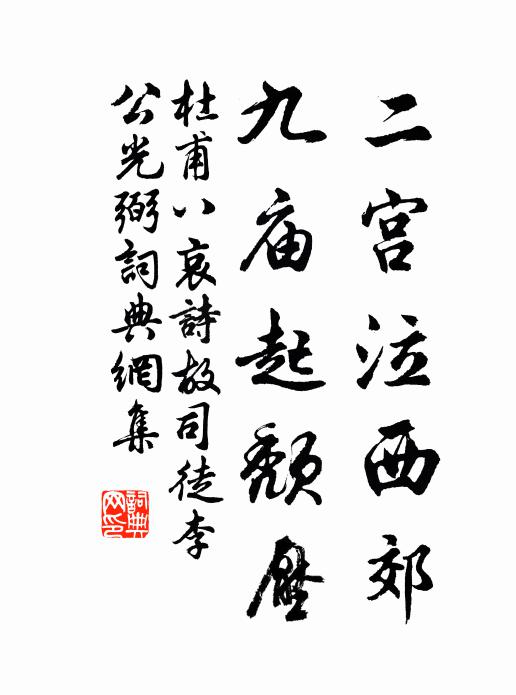 二宫泣西郊
九庙起颓壓
杜甫八哀詩故司徒李
公光弼詞典網集
詞典网印